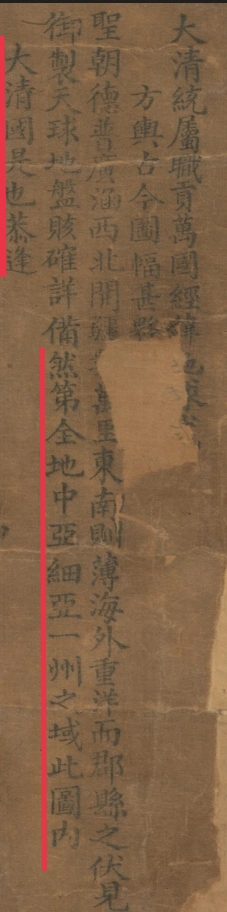 大清統屬職貢萬國經緯地球
方輿古今圖幅甚夥
聖朝德普廣涵西北開疆萬里東南則薄海外重洋而郡縣之伏見
御製天球地盤賅確詳備然第全地中亞細亞一州之域此圖內
大清國是也恭逢